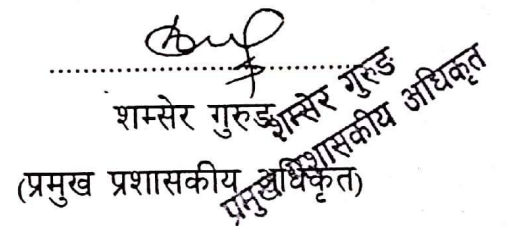 ....................................
शम्सेर गुरुङ
(प्रमुख प्रशासकीय अधिकृत)
शम्सेर गुरुङ
प्रमुख प्रशासकीय अधिकृत